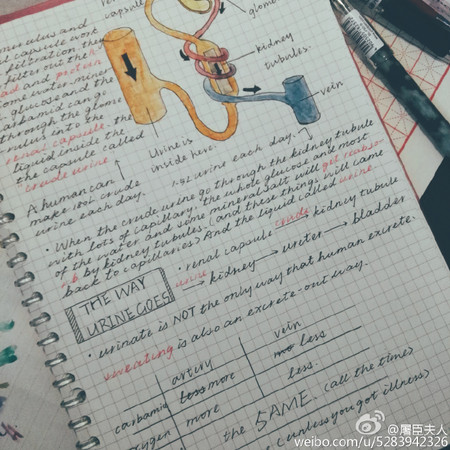 capsule
glome
kidney
tubules.
vein
Urine is
inside here.
merulus and
capsule work
filtration, they
filter out the b
and protein
some water, miner
glucose and the
carbamid can go
through the glome
rulus into the
renal capsule. the
liquid inside the
the capsule called
"crude urine"
A human can
make 180L crude
urine each day.
1.5L urine each day.
· When the crude urine go through the kidney tubule
with lots of capillary, the whole glucose and most
of the water and some mineral salt will get reabso
rb by kidney tubules. (and these things will came
back to capillaries) And the liquid called urine.
THE WAY
URINE GOES
· renal capsule crude kidney tubule
urine → kidney → ureter → bladder
· urinate is NOT the only way that human excrete.
sweating is also an excrete-out way.
artery
vein
carbamid
less more
mo less
oxygen
more
less.
the SAME. (all the time)
(unless you got illness)
@屠臣夫人
weibo.com/u/5283942326